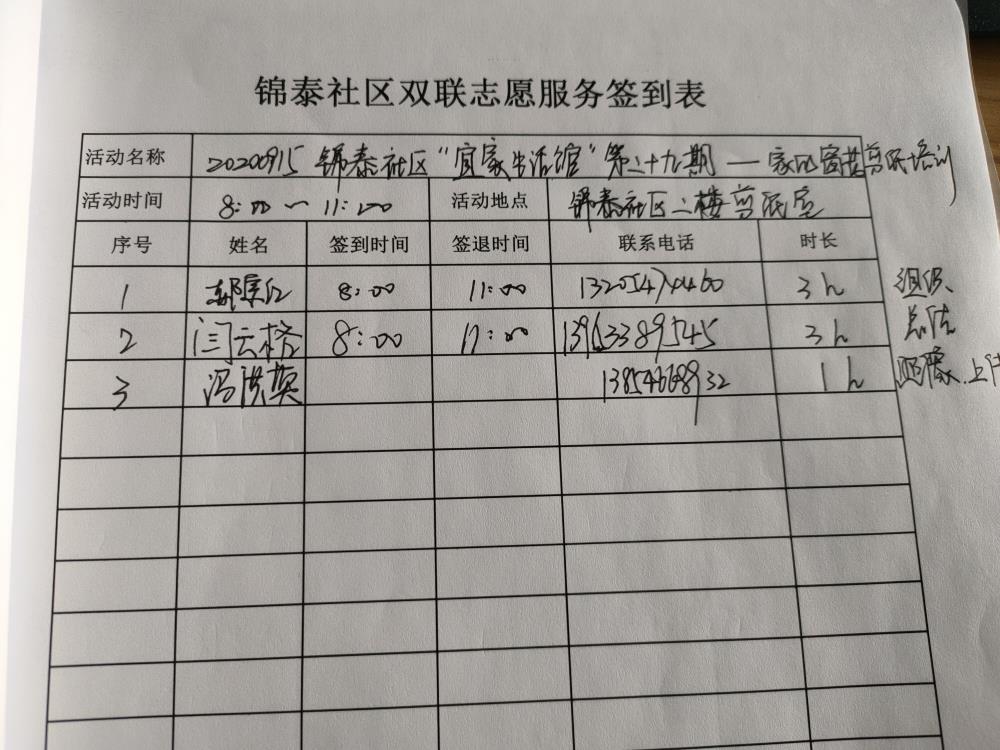 锦泰社区双联志愿服务签到表
活动名称 20200915 锦泰社区“宜家生活馆”第二十九期——家风窗花剪纸培训
活动时间 8:00 — 11:00 活动地点 锦泰社区二楼剪纸室
序号 姓名 签到时间 签退时间 联系电话 时长
1 8:00 11:00 3h 组织、
2 闫云格 8:00 11:00 13963389545 3h 总结
3 冯洪英 13854668932 1h 照像.上传